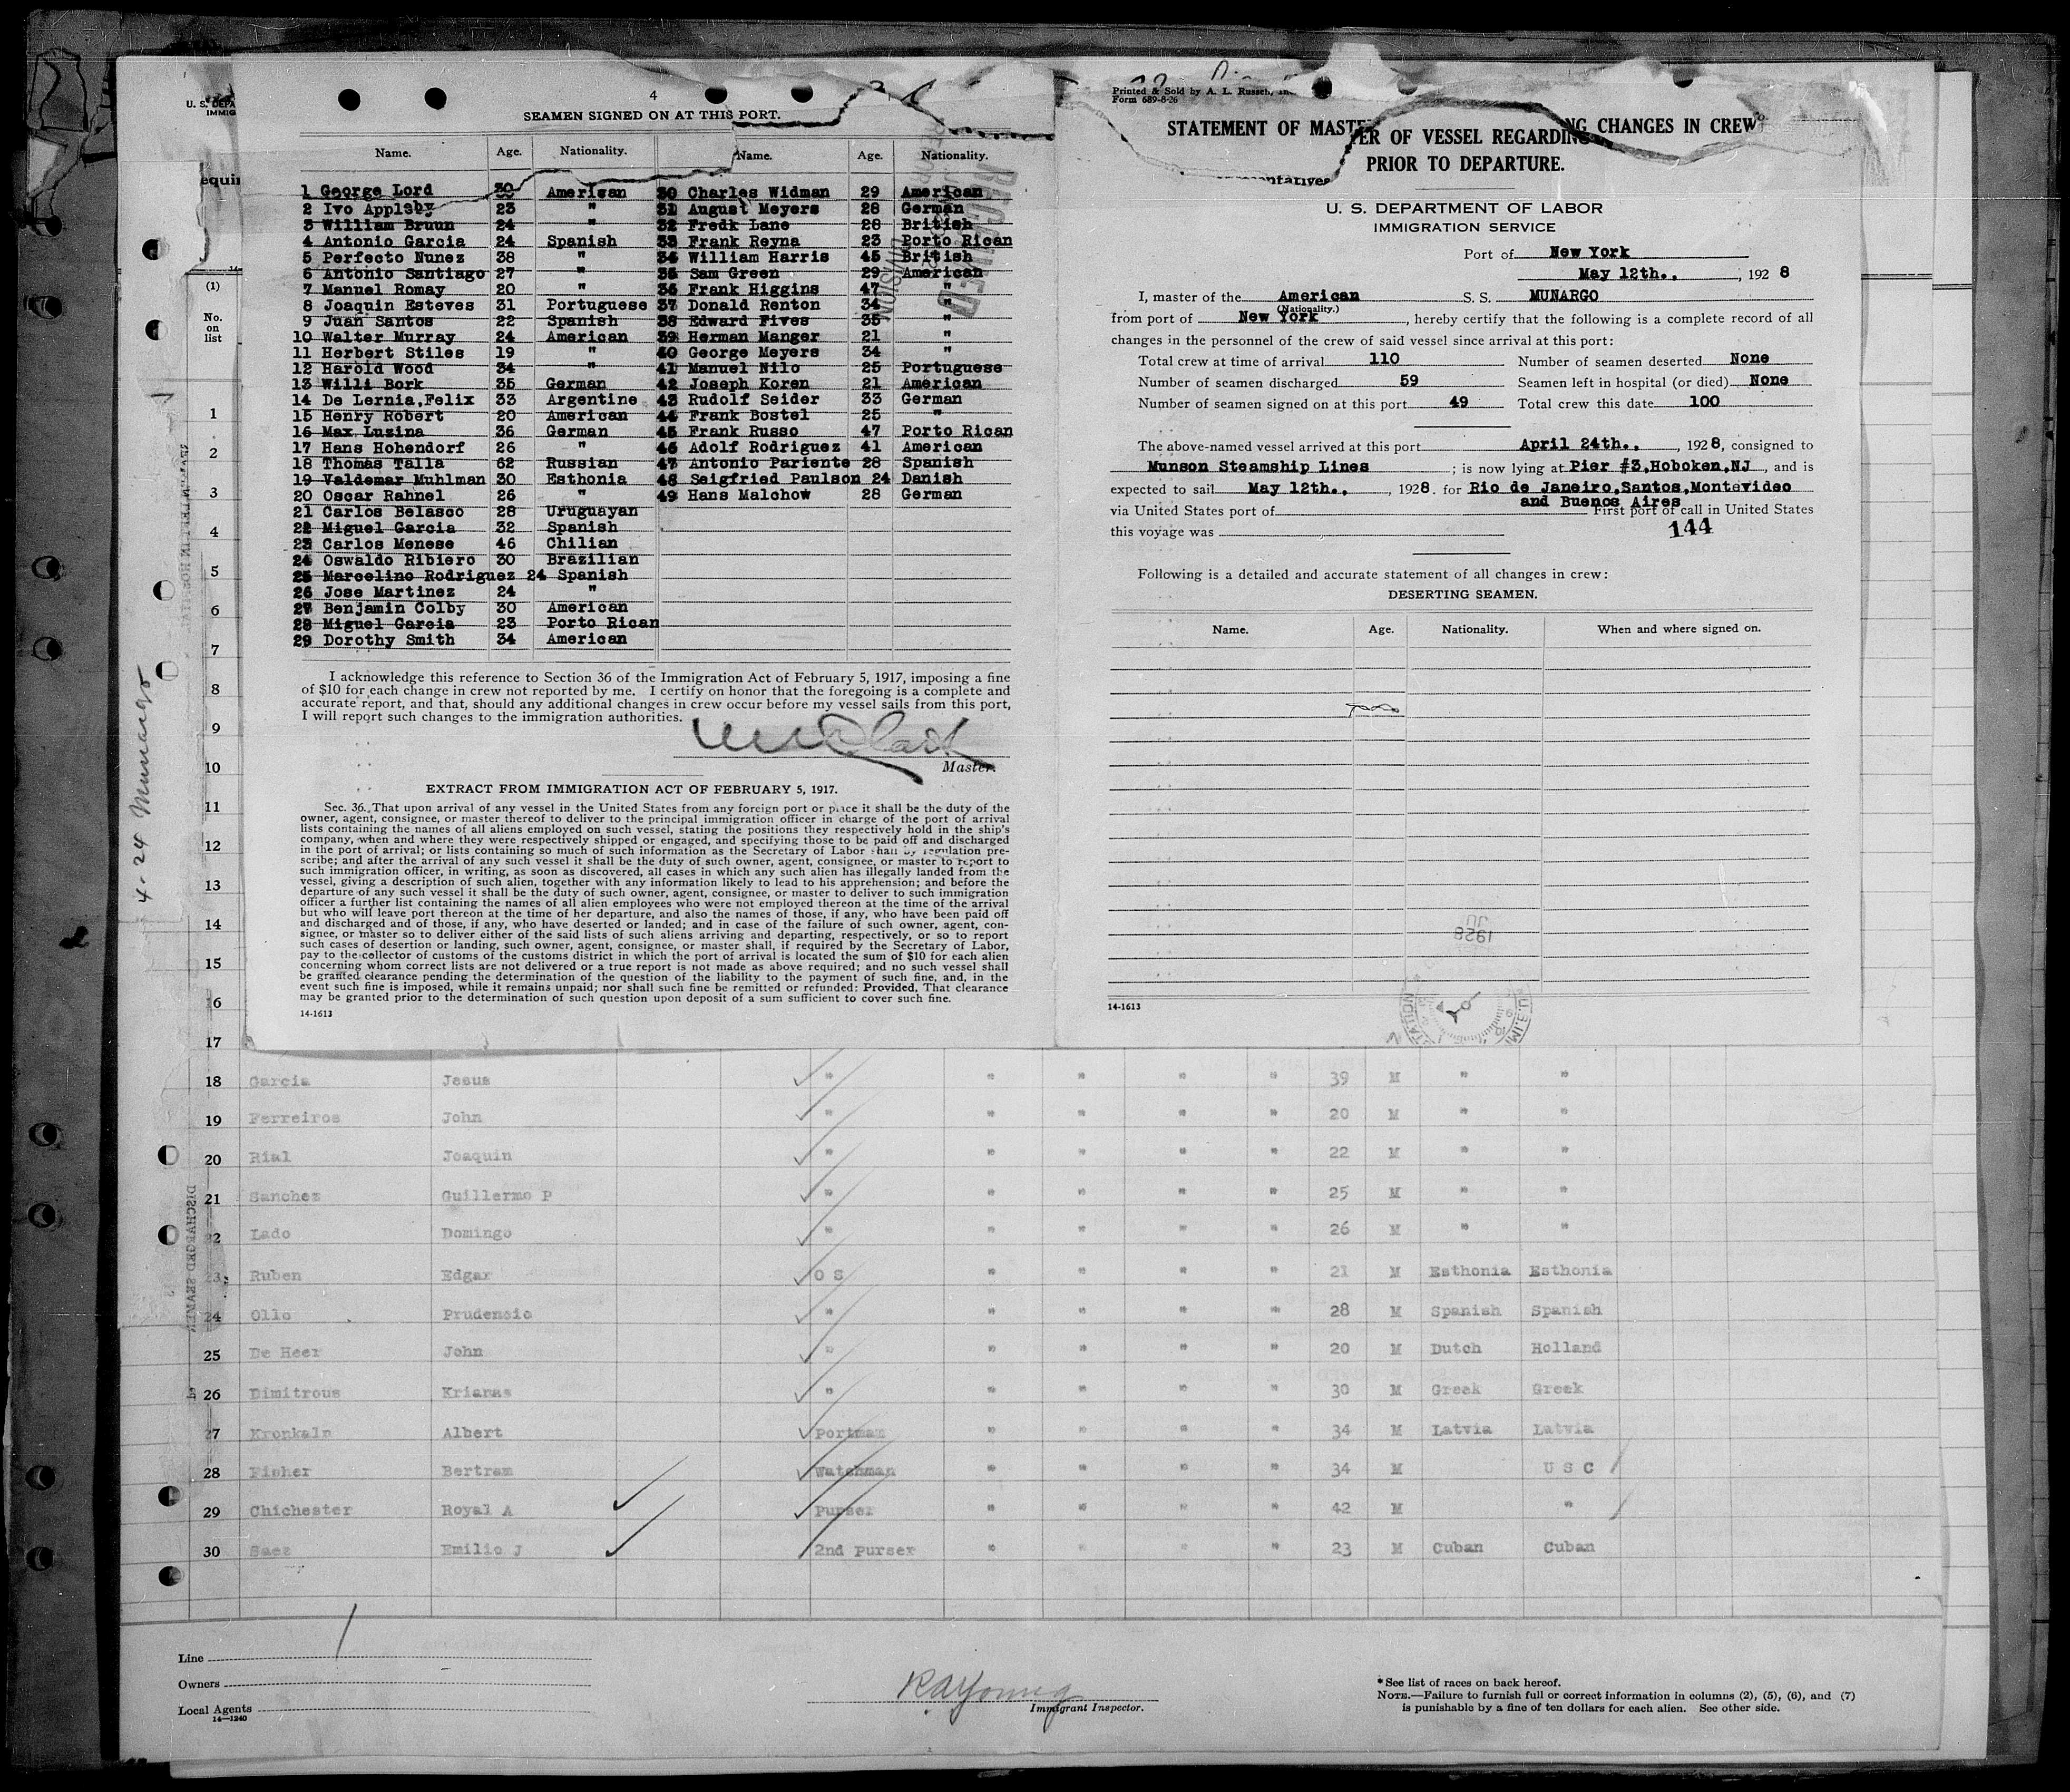 U. S. DEPA
IMMIG
equir
(1)
No.
on
list
4-24 Munargo
4
SEAMEN SIGNED ON AT THIS PORT.
Name. Age. Nationality. Name. Age. Nationality.
1 George Lord 30 American 30 Charles Widman 29 American
2 Ivo Appleby 23 " 31 August Meyers 28 German
3 William Bruun 24 " 32 Fredk Lane 28 British
4 Antonio Garcia 24 Spanish 33 Frank Reyna 23 Porto Rican
5 Perfecto Nunez 38 " 34 William Harris 45 British
6 Antonio Santiago 27 " 35 Sam Green 29 American
7 Manuel Romay 20 " 36 Frank Higgins 47 "
8 Joaquin Esteves 31 Portuguese 37 Donald Renton 34 "
9 Juan Santos 22 Spanish 38 Edward Fives 35 "
10 Walter Murray 24 American 39 Herman Manger 21 "
11 Herbert Stiles 19 " 40 George Meyers 34 "
12 Harold Wood 34 " 41 Manuel Nilo 25 Portuguese
13 Willi Bork 35 German 42 Joseph Koren 21 American
14 De Lernia,Felix 33 Argentine 43 Rudolf Seider 33 German
15 Henry Robert 20 American 44 Frank Bostel 25 "
16 Max Luzina 36 German 45 Frank Russo 47 Porto Rican
17 Hans Hohendorf 26 " 46 Adolf Rodriguez 41 American
18 Thomas Talla 62 Russian 47 Antonio Pariente 28 Spanish
19 Valdemar Muhlman 30 Esthonia 48 Seigfried Paulson 24 Danish
20 Oscar Rahnel 26 " 49 Hans Malchow 28 German
21 Carlos Belasco 28 Uruguayan
22 Miguel Garcia 32 Spanish
23 Carlos Menese 46 Chilian
24 Oswaldo Ribiero 30 Brazilian
25 Marcelino Rodriguez 24 Spanish
26 Jose Martinez 24 "
27 Benjamin Colby 30 American
28 Miguel Garcia 23 Porto Rican
29 Dorothy Smith 34 American
RECEIVED
DIVISION
I acknowledge this reference to Section 36 of the Immigration Act of February 5, 1917, imposing a fine
of $10 for each change in crew not reported by me. I certify on honor that the foregoing is a complete and
accurate report, and that, should any additional changes in crew occur before my vessel sails from this port,
I will report such changes to the immigration authorities.
Master.
EXTRACT FROM IMMIGRATION ACT OF FEBRUARY 5, 1917.
Sec. 36. That upon arrival of any vessel in the United States from any foreign port or place it shall be the duty of the
owner, agent, consignee, or master thereof to deliver to the principal immigration officer in charge of the port of arrival
lists containing the names of all aliens employed on such vessel, stating the positions they respectively hold in the ship's
company, when and where they were respectively shipped or engaged, and specifying those to be paid off and discharged
in the port of arrival; or lists containing so much of such information as the Secretary of Labor shall by regulation pre-
scribe; and after the arrival of any such vessel it shall be the duty of such owner, agent, consignee, or master to report to
such immigration officer, in writing, as soon as discovered, all cases in which any such alien has illegally landed from the
vessel, giving a description of such alien, together with any information likely to lead to his apprehension; and before the
departure of any such vessel it shall be the duty of such owner, agent, consignee, or master to deliver to such immigration
officer a further list containing the names of all alien employees who were not employed thereon at the time of the arrival
but who will leave port thereon at the time of her departure, and also the names of those, if any, who have been paid off
and discharged and of those, if any, who have deserted or landed; and in case of the failure of such owner, agent, con-
signee, or master so to deliver either of the said lists of such aliens arriving and departing, respectively, or so to report
such cases of desertion or landing, such owner, agent, consignee, or master shall, if required by the Secretary of Labor,
pay to the collector of customs of the customs district in which the port of arrival is located the sum of $10 for each alien
concerning whom correct lists are not delivered or a true report is not made as above required; and no such vessel shall
be granted clearance pending the determination of the question of the liability to the payment of such fine, and, in the
event such fine is imposed, while it remains unpaid; nor shall such fine be remitted or refunded: Provided, That clearance
may be granted prior to the determination of such question upon deposit of a sum sufficient to cover such fine.
14-1613
Printed & Sold by A. L. Russell, Inc.
Form 689-8-26
STATEMENT OF MASTER OF VESSEL REGARDING CHANGES IN CREW
PRIOR TO DEPARTURE.
entatives
U. S. DEPARTMENT OF LABOR
IMMIGRATION SERVICE
Port of New York
May 12th., , 192 8
I, master of the American S. S. MUNARGO
(Nationality.)
from port of New York , hereby certify that the following is a complete record of all
changes in the personnel of the crew of said vessel since arrival at this port:
Total crew at time of arrival 110 Number of seamen deserted None
Number of seamen discharged 59 Seamen left in hospital (or died) None
Number of seamen signed on at this port 49 Total crew this date 100
The above-named vessel arrived at this port April 24th., , 192 8, consigned to
Munson Steamship Lines ; is now lying at Pier #3,Hoboken,NJ , and is
expected to sail May 12th., , 192 8. for Rio de Janeiro,Santos,Montevideo
and Buenos Aires
via United States port of First port of call in United States
this voyage was 144
Following is a detailed and accurate statement of all changes in crew:
DESERTING SEAMEN.
Name. Age. Nationality. When and where signed on.
1928
14-1613
1
2
3
4
5
6
7
8
9
10
11
12
13
14
15
16
17
18 Garcia Jesus " " " " " 39 M " "
19 Ferreiros John " " " " " 20 M " "
20 Rial Joaquin " " " " " 22 M " "
21 Sanchez Guillermo P " " " " " 25 M " "
22 Lado Domingo " " " " " 26 M " "
23 Ruben Edgar O S " " " " 21 M Esthonia Esthonia
24 Ollo Prudensio " " " " " 28 M Spanish Spanish
25 De Heer John " " " " " 20 M Dutch Holland
26 Dimitrous Krianas " " " " " 30 M Greek Greek
27 Kronkaln Albert Portman " " " " 34 M Latvia Latvia
28 Fisher Bertram Watchman " " " " 34 M U S C
29 Chichester Royal A Purser " " " " 42 M "
30 Saez Emilio J 2nd Purser " " " " 23 M Cuban Cuban
DISCHARGED SEAMEN
Line
Owners
Local Agents
14-1240
RAYoung
Immigrant Inspector.
* See list of races on back hereof.
NOTE.—Failure to furnish full or correct information in columns (2), (5), (6), and (7)
is punishable by a fine of ten dollars for each alien. See other side.